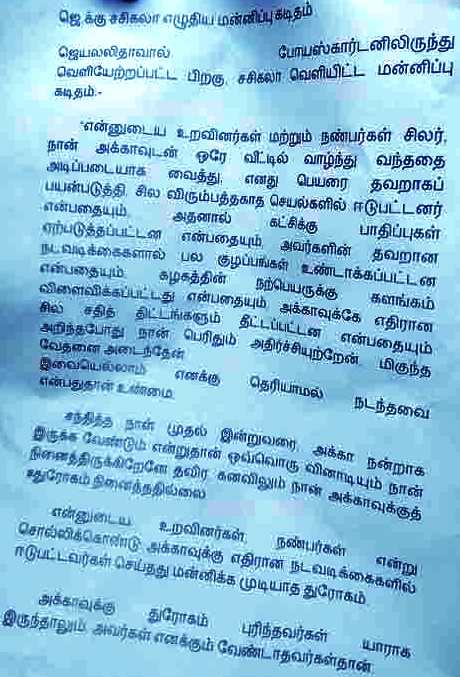 ஜெ.க்கு சசிகலா எழுதிய மன்னிப்பு கடிதம்
ஜெயலலிதாவால் போயஸ்கார்டனிலிருந்து
வெளியேற்றப்பட்ட பிறகு, சசிகலா வெளியிட்ட மன்னிப்பு
கடிதம்.-
"என்னுடைய உறவினர்கள் மற்றும் நண்பர்கள் சிலர்,
நான் அக்காவுடன் ஒரே வீட்டில் வாழ்ந்து வந்ததை
அடிப்படையாக வைத்து, எனது பெயரை தவறாகப்
பயன்படுத்தி, சில விரும்பத்தகாத செயல்களில் ஈடுபட்டனர்
என்பதையும், அதனால் கட்சிக்கு பாதிப்புகள்
ஏற்படுத்தப்பட்டன என்பதையும், அவர்களின் தவறான
நடவடிக்கைகளால் பல குழப்பங்கள் உண்டாக்கப்பட்டன
என்பதையும், கழகத்தின் நற்பெயருக்கு களங்கம்
விளைவிக்கப்பட்டது என்பதையும், அக்காவுக்கே எதிரான
சில சதித் திட்டங்களும் தீட்டப்பட்டன என்பதையும்
அறிந்தபோது நான் பெரிதும் அதிர்ச்சியுற்றேன். மிகுந்த
வேதனை அடைந்தேன்.
இவையெல்லாம் எனக்கு தெரியாமல் நடந்தவை
என்பதுதான் உண்மை.
சந்தித்த நாள் முதல் இன்றுவரை, அக்கா நன்றாக
இருக்க வேண்டும் என்றுதான் ஒவ்வொரு வினாடியும் நான்
நினைத்திருக்கிறேனே தவிர, கனவிலும் நான் அக்காவுக்குத்
துரோகம் நினைத்ததில்லை.
என்னுடைய உறவினர்கள், நண்பர்கள் என்று
சொல்லிக்கொண்டு, அக்காவுக்கு எதிரான நடவடிக்கைகளில்
ஈடுபட்டவர்கள் செய்தது மன்னிக்க முடியாத துரோகம்.
அக்காவுக்கு துரோகம் புரிந்தவர்கள் யாராக
இருந்தாலும், அவர்கள் எனக்கும் வேண்டாதவர்கள்தான்.